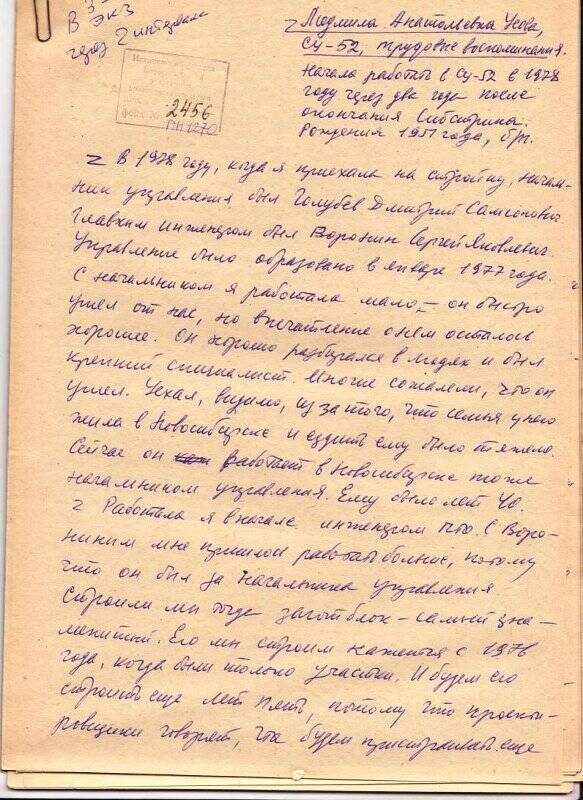 В 3
экз
через 2 интервала
2456
Людмила Анатольевна Усова,
СУ-52, трудовые воспоминания.
Начала работы в СУ-52 в 1978
году через два года после
окончания Сибстрина.
Рождения 1951 года, бр.
В 1978 году, когда я приехала на стройку, началь-
ник управления был Голубев Дмитрий Самсонович.
Главным инженером был Воронин Сергей Яковлевич.
Управление было образовано в январе 1977 года.
С начальником я работала мало, – он быстро
ушел от нас, но впечатление о нем осталось
хорошее. Он хорошо разбирался в людях и был
крепкий специалист. Многие сожалели, что он
ушел. Уехал, видимо, из за того, что семья у него
жила в Новосибирске и ездить ему было тяжело.
Сейчас он работает в Новосибирске тоже
начальником управления. Ему было лет 40.
Работала я вначале инженером ПТО. С Воро-
ниным мне пришлось работать больше, потому
что он был за начальника управления.
Строили мы тогда заготблок – самый зна-
менитый. Его мы строим кажется с 1976
года, когда были только участки. И будем его
строить еще лет пять, потому что проекти-
ровщики говорят, что будем пристраивать еще